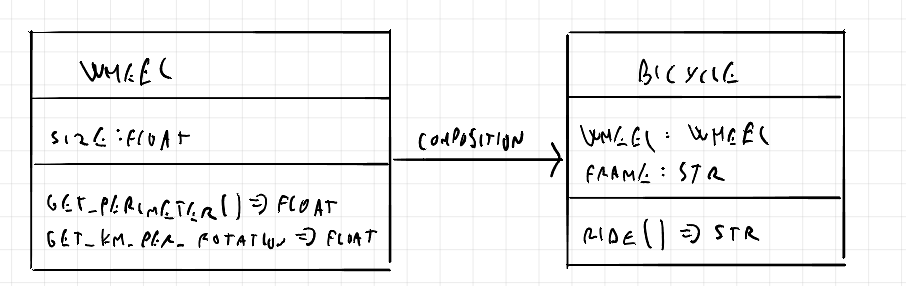 WHEEL
SIZE:FLOAT
GET_PERIMETER() => FLOAT
GET_KM_PER_ROTATION => FLOAT
COMPOSITION
BICYCLE
WHEEL: WHEEL
FRAME: STR
RIDE() => STR